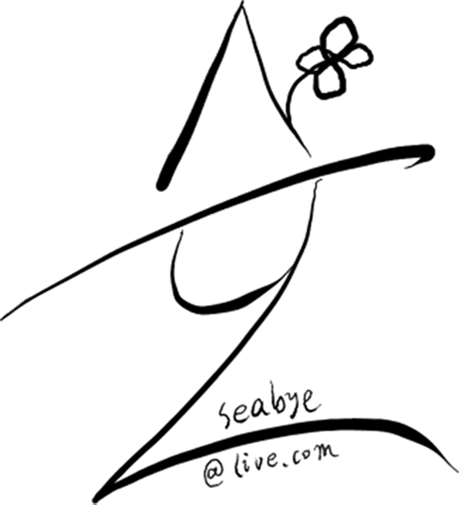 seabye
@live.com